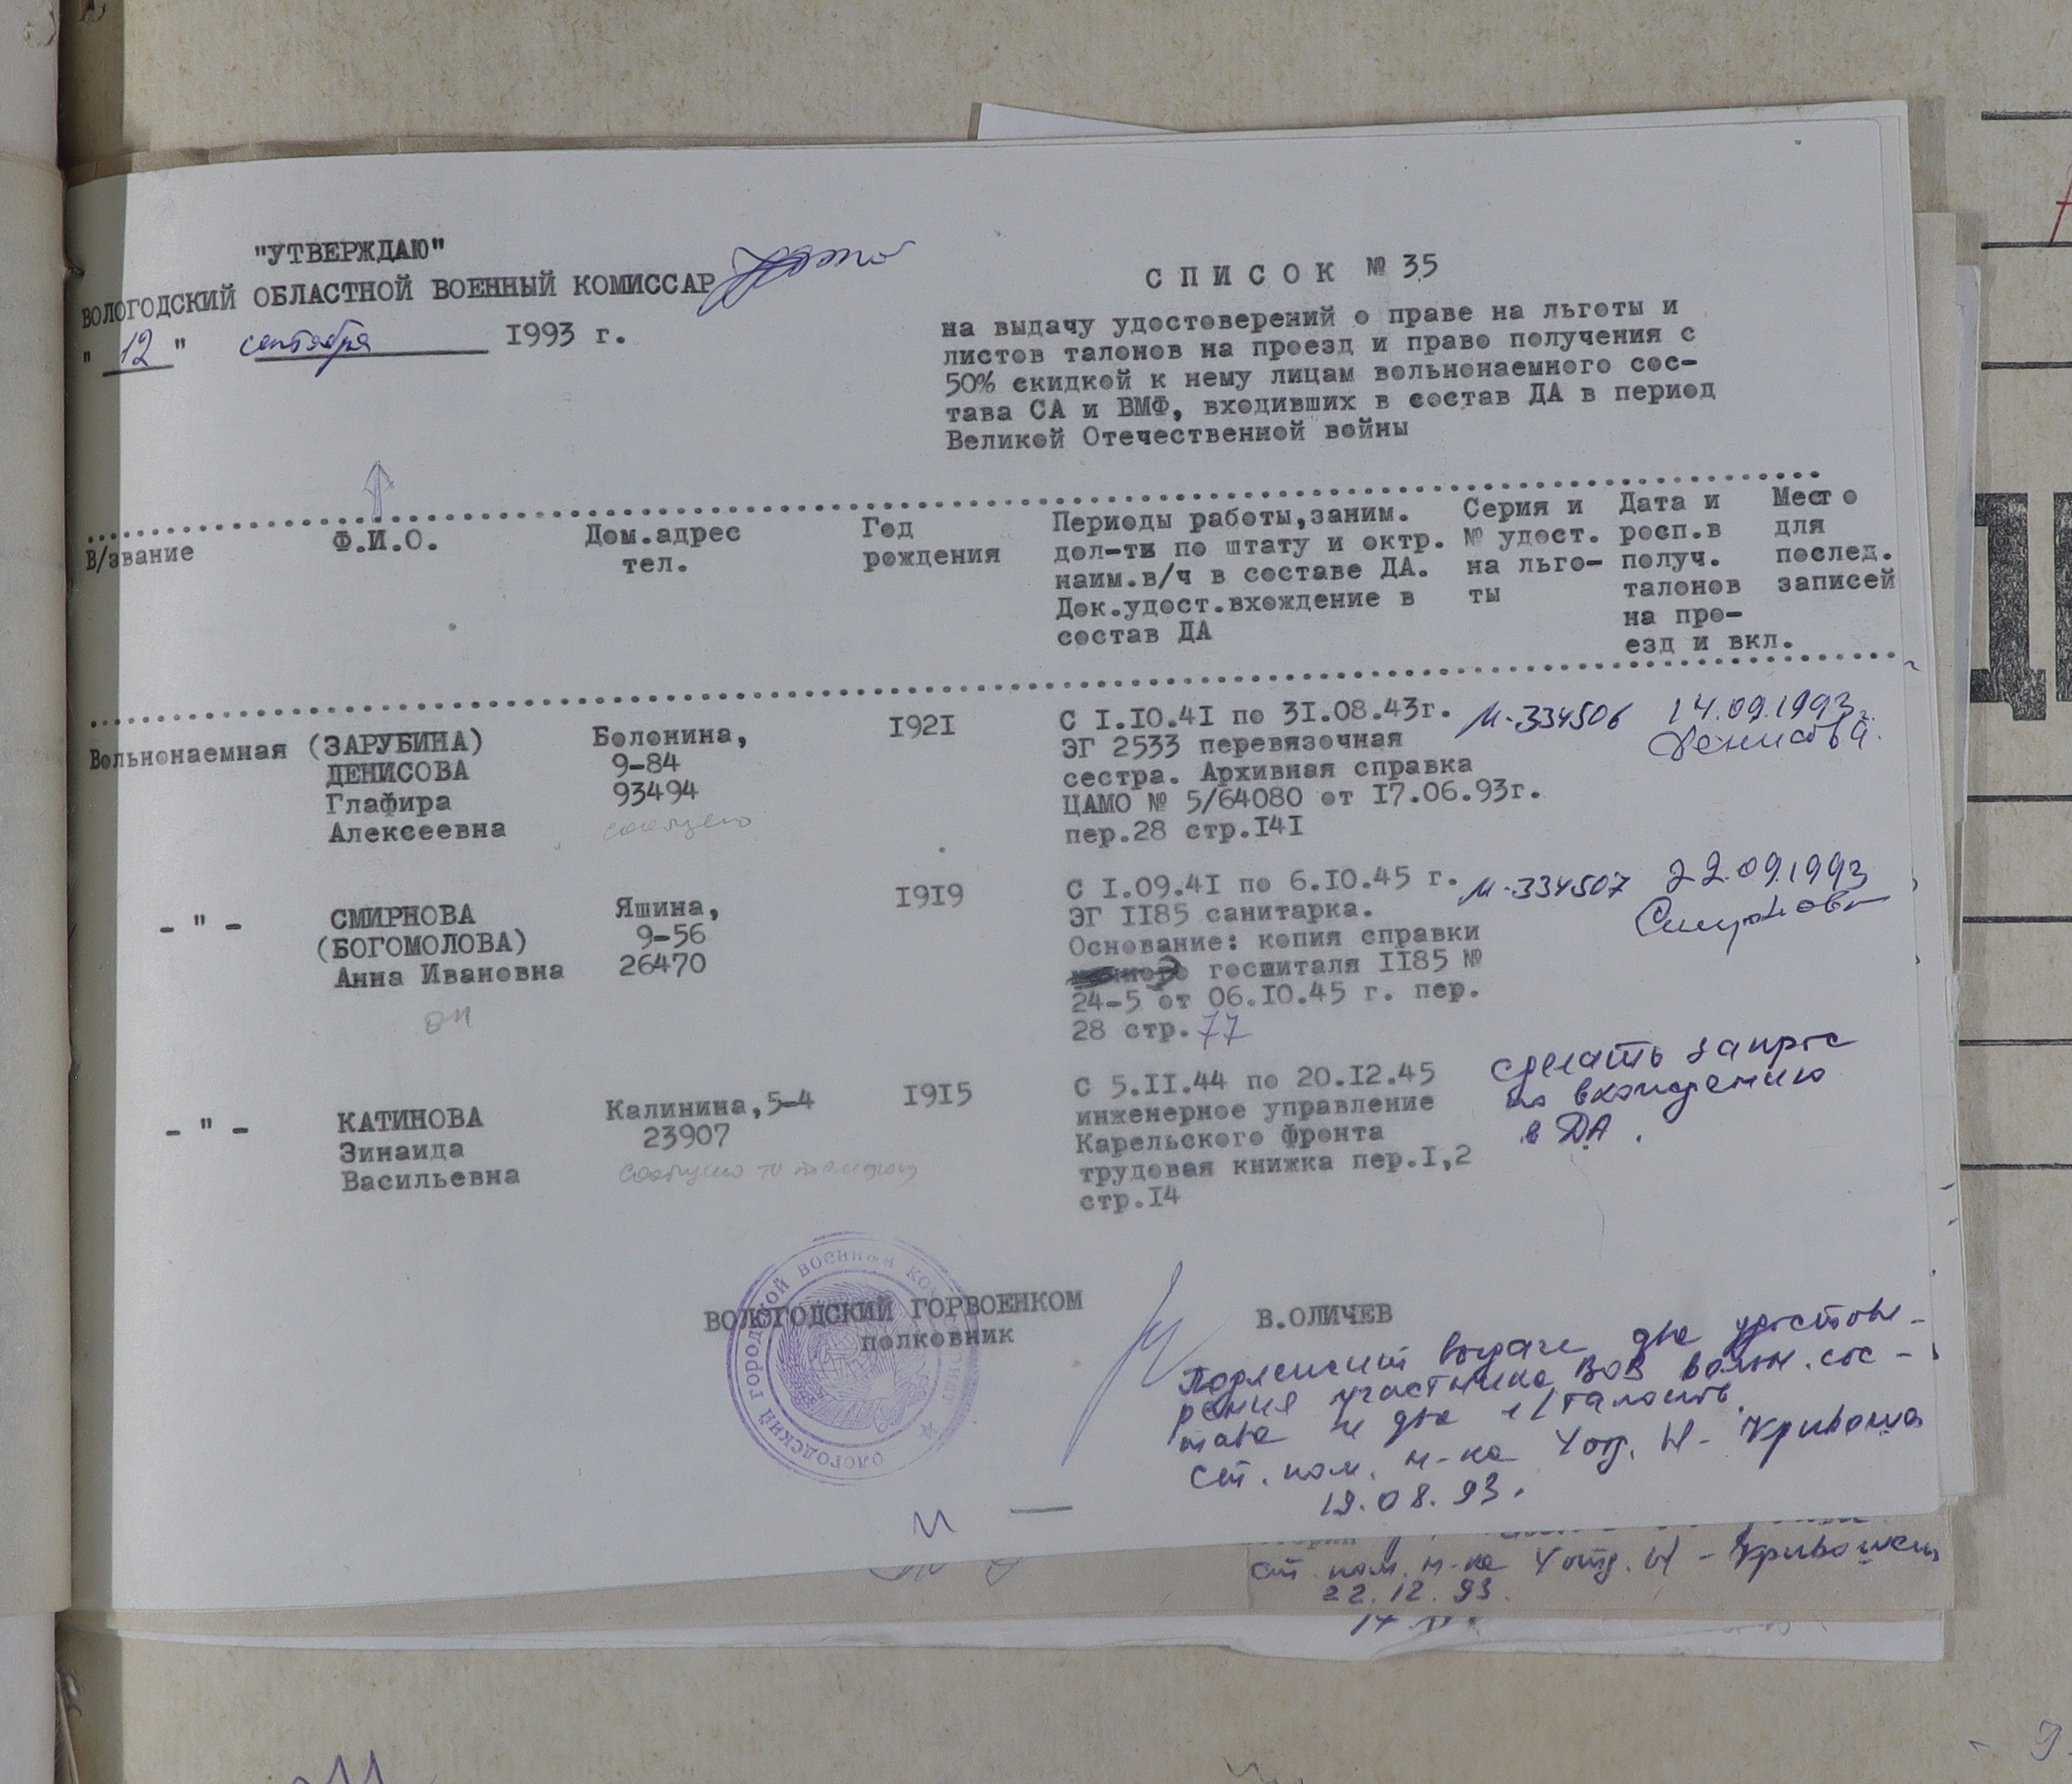 "УТВЕРЖДАЮ"
ВОЛОГОДСКИЙ ОБЛАСТНОЙ ВОЕННЫЙ КОМИССАР
" 12 " сентября 1993 г.
СПИСОК № 35
на выдачу удостоверений о праве на льготы и
листов талонов на проезд и право получения с
50% скидкой к нему лицам вольнонаемного сос-
тава СА и ВМФ, входивших в состав ДА в период
Великой Отечественной войны
В/звание
Ф.И.О.
Дом.адрес
тел.
Год
рождения
Периоды работы,заним.
дол-ти по штату и октр.
наим.в/ч в составе ДА.
Док.удост.вхождение в
состав ДА
Серия и
№ удост.
на льго-
ты
Дата и
росп.в
получ.
талонов
на про-
езд и вкл.
Место
для
послед.
записей
Вольнонаемная
(ЗАРУБИНА)
ДЕНИСОВА
Глафира
Алексеевна
Болонина,
9-84
93494
сообщено
1921
С 1.10.41 по 31.08.43г.
ЭГ 2533 перевязочная
сестра. Архивная справка
ЦАМО № 5/64080 от 17.06.93г.
пер.28 стр.141
М-334506
14.09.1993г.
Денисова.
- " -
СМИРНОВА
(БОГОМОЛОВА)
Анна Ивановна
Яшина,
9-56
26470
1919
С 1.09.41 по 6.10.45 г.
ЭГ 1185 санитарка.
Основание: копия справки
госпиталя 1185 №
24-5 от 06.10.45 г. пер.
28 стр. 77
М-334507
22.09.1993
Смирнова
- " -
КАТИНОВА
Зинаида
Васильевна
Калинина,5-4
23907
сообщено по телефону
1915
С 5.11.44 по 20.12.45
инженерное управление
Карельского фронта
трудовая книжка пер.1,2
стр.14
сделать запрос
по вхождению
в ДА.
ВОЛОГОДСКИЙ ГОРВОЕНКОМ
полковник
В.ОЛИЧЕВ
ВОЛОГОДСКИЙ ГОРОДСКОЙ ВОЕННЫЙ КОМИССАРИАТ
Подлежит выдаче два удостове-
рения участника ВОВ вольн. сос-
тава и два л/талонов.
Ст. пом. н-ка 4 отд.
19.08.93.
ст. пом. н-ка 4 отд.
22.12.93.